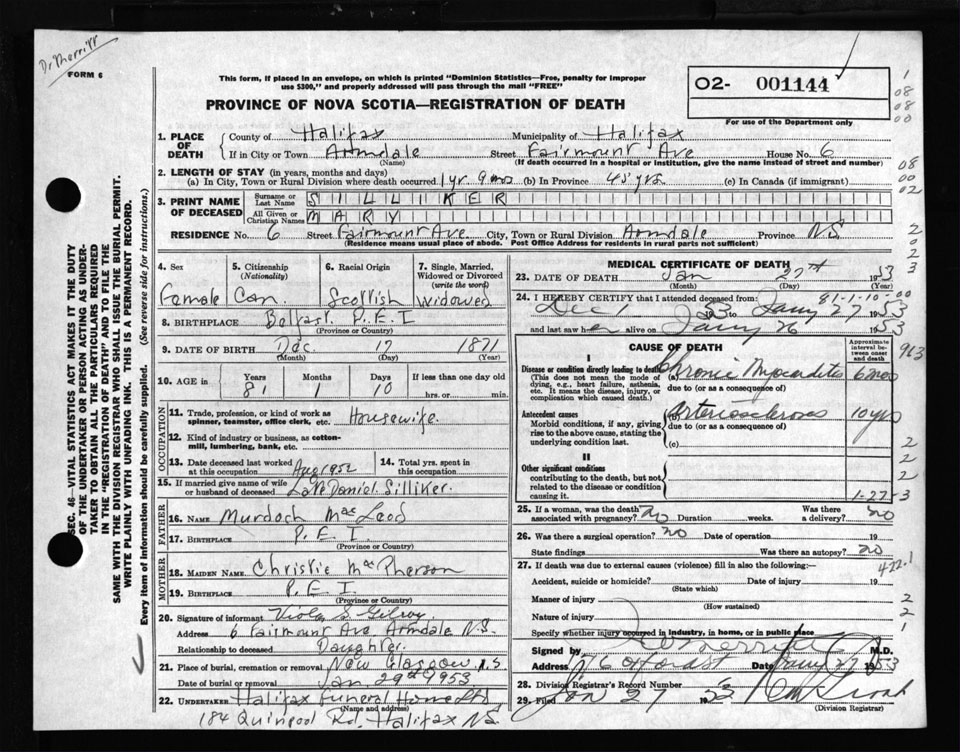 Dr Merritt
FORM 6
This form, if placed in an envelope, on which is printed "Dominion Statistics—Free, penalty for improper
use $300," and properly addressed will pass through the mail "FREE"
O2- 001144
For use of the Department only
PROVINCE OF NOVA SCOTIA—REGISTRATION OF DEATH
1. PLACE OF DEATH { County of Halifax Municipality of Halifax
If in City or Town Armdale Street Fairmount Ave House No. 6
(Name) (If death occurred in a hospital or institution, give the name instead of street and number)
2. LENGTH OF STAY (in years, months and days)
(a) In City, Town or Rural Division where death occurred 1 yr 9 mos (b) In Province 45 yrs (c) In Canada (if immigrant)
3. PRINT NAME OF DECEASED { Surname or Last Name SILLIKER
All Given or Christian Names MARY
RESIDENCE No. 6 Street Fairmount Ave City, Town or Rural Division Armdale Province N.S.
(Residence means usual place of abode. Post Office Address for residents in rural parts not sufficient)
4. Sex Female
5. Citizenship (Nationality) Can.
6. Racial Origin Scottish
7. Single, Married, Widowed or Divorced (write the word) Widowed
8. BIRTHPLACE Belfast P.E.I
(Province or Country)
9. DATE OF BIRTH Dec. 17 1871
(Month) (Day) (Year)
10. AGE in { Years 81 Months 1 Days 10 If less than one day old
hrs. or min.
OCCUPATION
11. Trade, profession, or kind of work as spinner, teamster, office clerk, etc. Housewife.
12. Kind of industry or business, as cotton-mill, lumbering, bank, etc.
13. Date deceased last worked at this occupation Aug 1952
14. Total yrs. spent in this occupation
15. If married give name of wife or husband of deceased Late Daniel Silliker
FATHER
16. NAME Murdoch MacLeod
17. BIRTHPLACE P.E.I
(Province or Country)
MOTHER
18. MAIDEN NAME Christie MacPherson
19. BIRTHPLACE P.E.I.
(Province or Country)
20. Signature of informant Viola S. Gilroy
Address 6 Fairmount Ave Armdale N.S.
Relationship to deceased Daughter.
21. Place of burial, cremation or removal New Glasgow N.S
Date of burial or removal Jan. 29th 1953
22. UNDERTAKER Halifax Funeral Home Ltd
(Name and address)
184 Quinpool Rd. Halifax N.S.
MEDICAL CERTIFICATE OF DEATH
23. DATE OF DEATH Jan 27th 1953
(Month) (Day)
81-1-10-00
24. I HEREBY CERTIFY that I attended deceased from:
Dec 1 53 to Jany 27 1953
and last saw her alive on Jany 26 1953
CAUSE OF DEATH
Approximate interval between onset and death
I
Disease or condition directly leading to death (a) Chronic Myocarditis 6 mos
(This does not mean the mode of dying, e.g., heart failure, asthenia, etc. It means the disease, injury, or complication which caused death.)
due to (or as a consequence of)
Antecedent causes (b) Arteriosclerosis 10 yrs
Morbid conditions, if any, giving rise to the above cause, stating the underlying condition last.
due to (or as a consequence of)
(c)
II
Other significant conditions contributing to the death, but not related to the disease or condition causing it.
1-27-3
25. If a woman, was the death associated with pregnancy? no Duration weeks. Was there a delivery? no
26. Was there a surgical operation? no Date of operation 19
State findings Was there an autopsy? no
27. If death was due to external causes (violence) fill in also the following:—
422.1
Accident, suicide or homicide? Date of injury 19
(State which)
Manner of injury
(How sustained)
Nature of injury
Specify whether injury occurred in industry, in home, or in public place
Signed by Merritt M.D.
Address Date Jany 27 1953
28. Division Registrar's Record Number
29. Filed Jan 27 1953
(Division Registrar)
SEC. 46—VITAL STATISTICS ACT MAKES IT THE DUTY
OF THE UNDERTAKER OR PERSON ACTING AS UNDER-
TAKER TO OBTAIN ALL THE PARTICULARS REQUIRED
IN THE "REGISTRATION OF DEATH" AND TO FILE THE
SAME WITH THE DIVISION REGISTRAR WHO SHALL ISSUE THE BURIAL PERMIT.
WRITE PLAINLY WITH UNFADING INK. THIS IS A PERMANENT RECORD.
Every item of information should be carefully supplied. (See reverse side for instructions.)
1
08
08
00
08
00
02
2
0
2
3
963
2
2
2
2
2
1